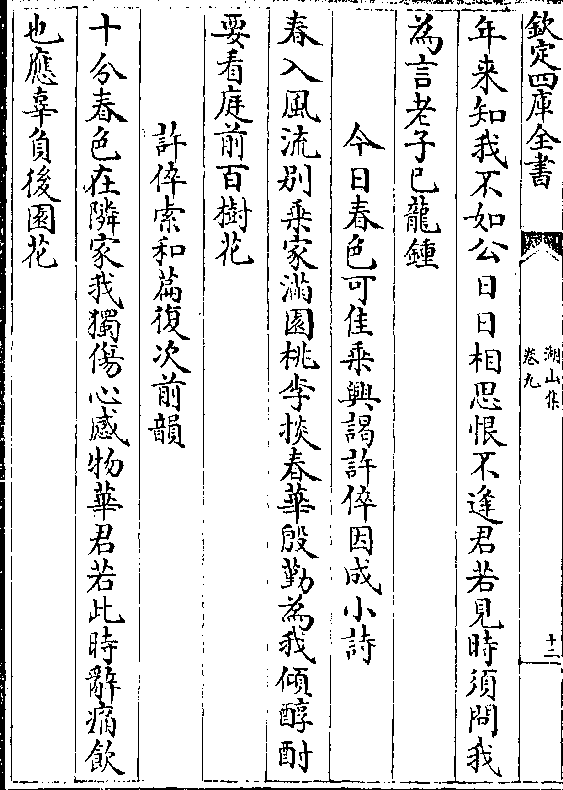 欽定四庫全書
湖山集
卷九
十二
年来知我不如公日日相思恨不逢君若見時須問我
為言老子已龍鍾
今日春色可佳乗興謁許倅因成小詩
春入風流别乗家滿園桃李掞春華殷勤為我傾醇酎
要看庭前百樹花
許倅索和篇復次前韻
十分春色在隣家我獨傷心感物華君若此時辭痛飲
也應辜負後園花